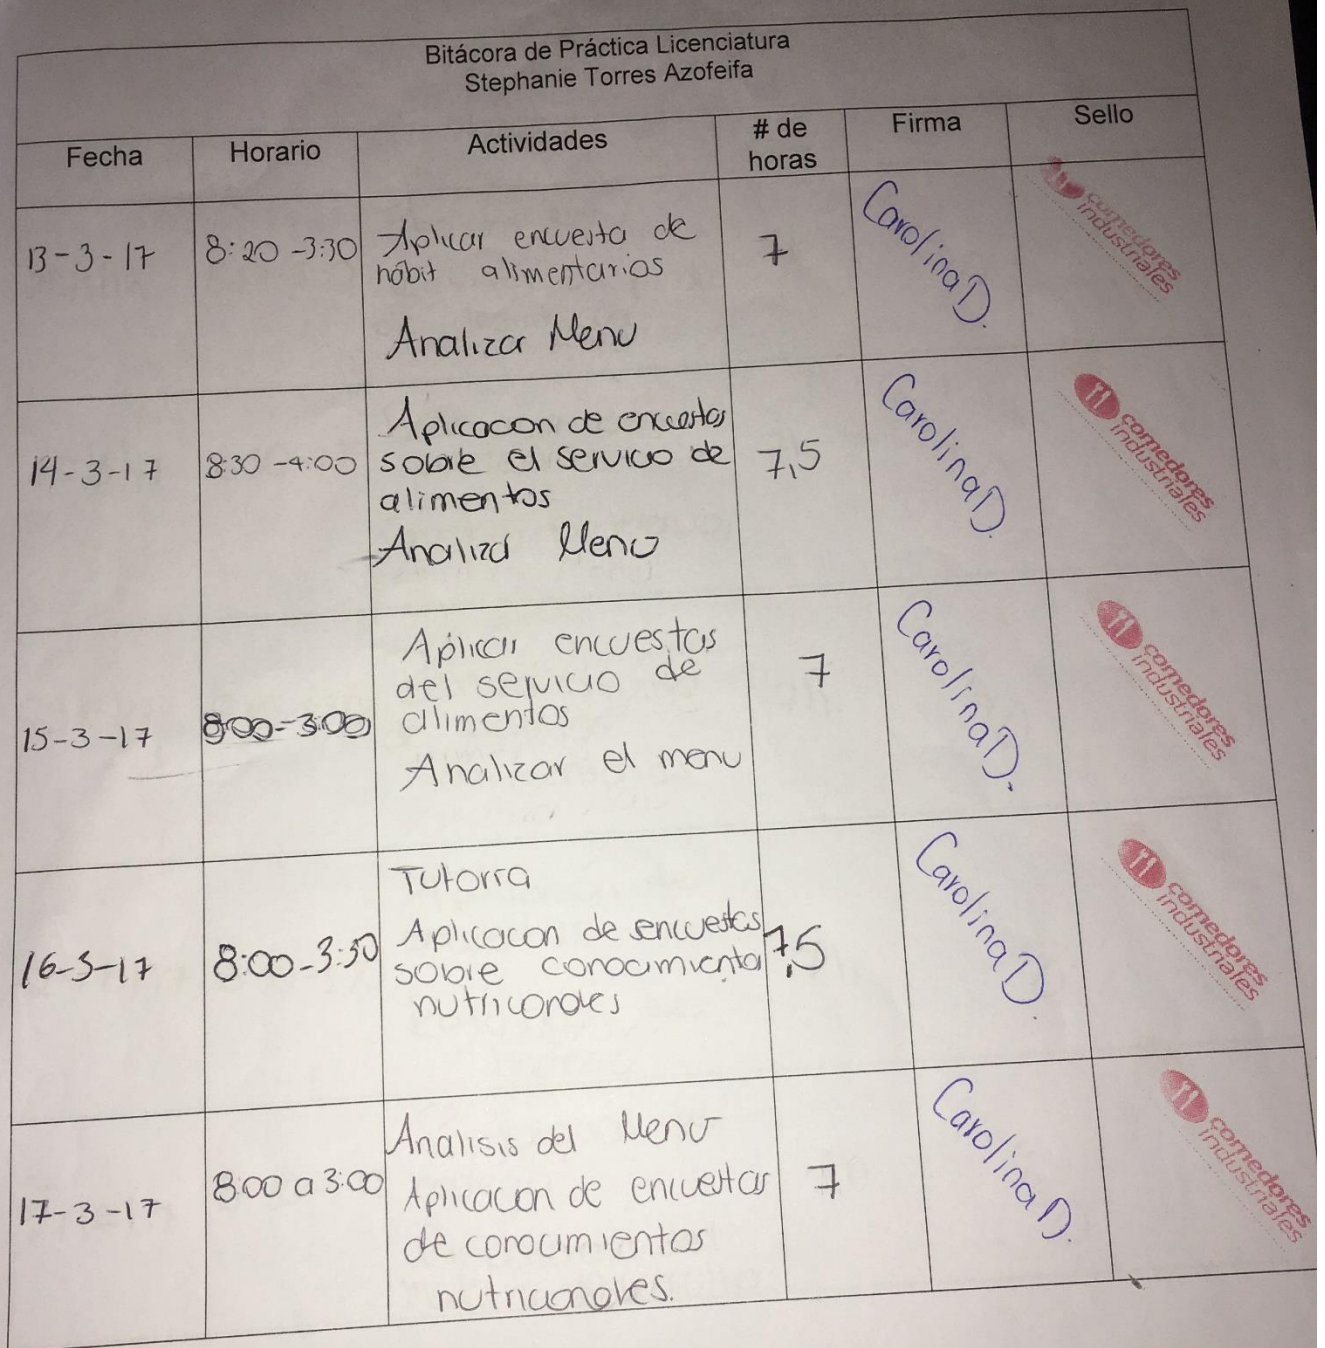 Bitácora de Práctica Licenciatura
Stephanie Torres Azofeifa
Fecha
Horario
Actividades
# de
horas
Firma
Sello
13-3-17
8:20-3:30
Aplicar encuesta de
hábit alimentarios
Analizar Menu
7
Carolina D.
comedores
industriales
14-3-17
8:30-4:00
Aplicacion de encuestas
sobre el servicio de
alimentos
Analizar Menu
7,5
Carolina D.
comedores
industriales
15-3-17
8:00-3:00
Aplicar encuestas
del servicio de
alimentos
Analizar el menu
7
Carolina D.
comedores
industriales
16-3-17
8:00-3:30
Tutorra
Aplicacion de encuestas
sobre conocimienta
nutricionales
7,5
Carolina D.
comedores
industriales
17-3-17
8:00 a 3:00
Analisis del Menu
Aplicacion de encuestas
de conocimientos
nutricionales.
7
Carolina D.
comedores
industriales